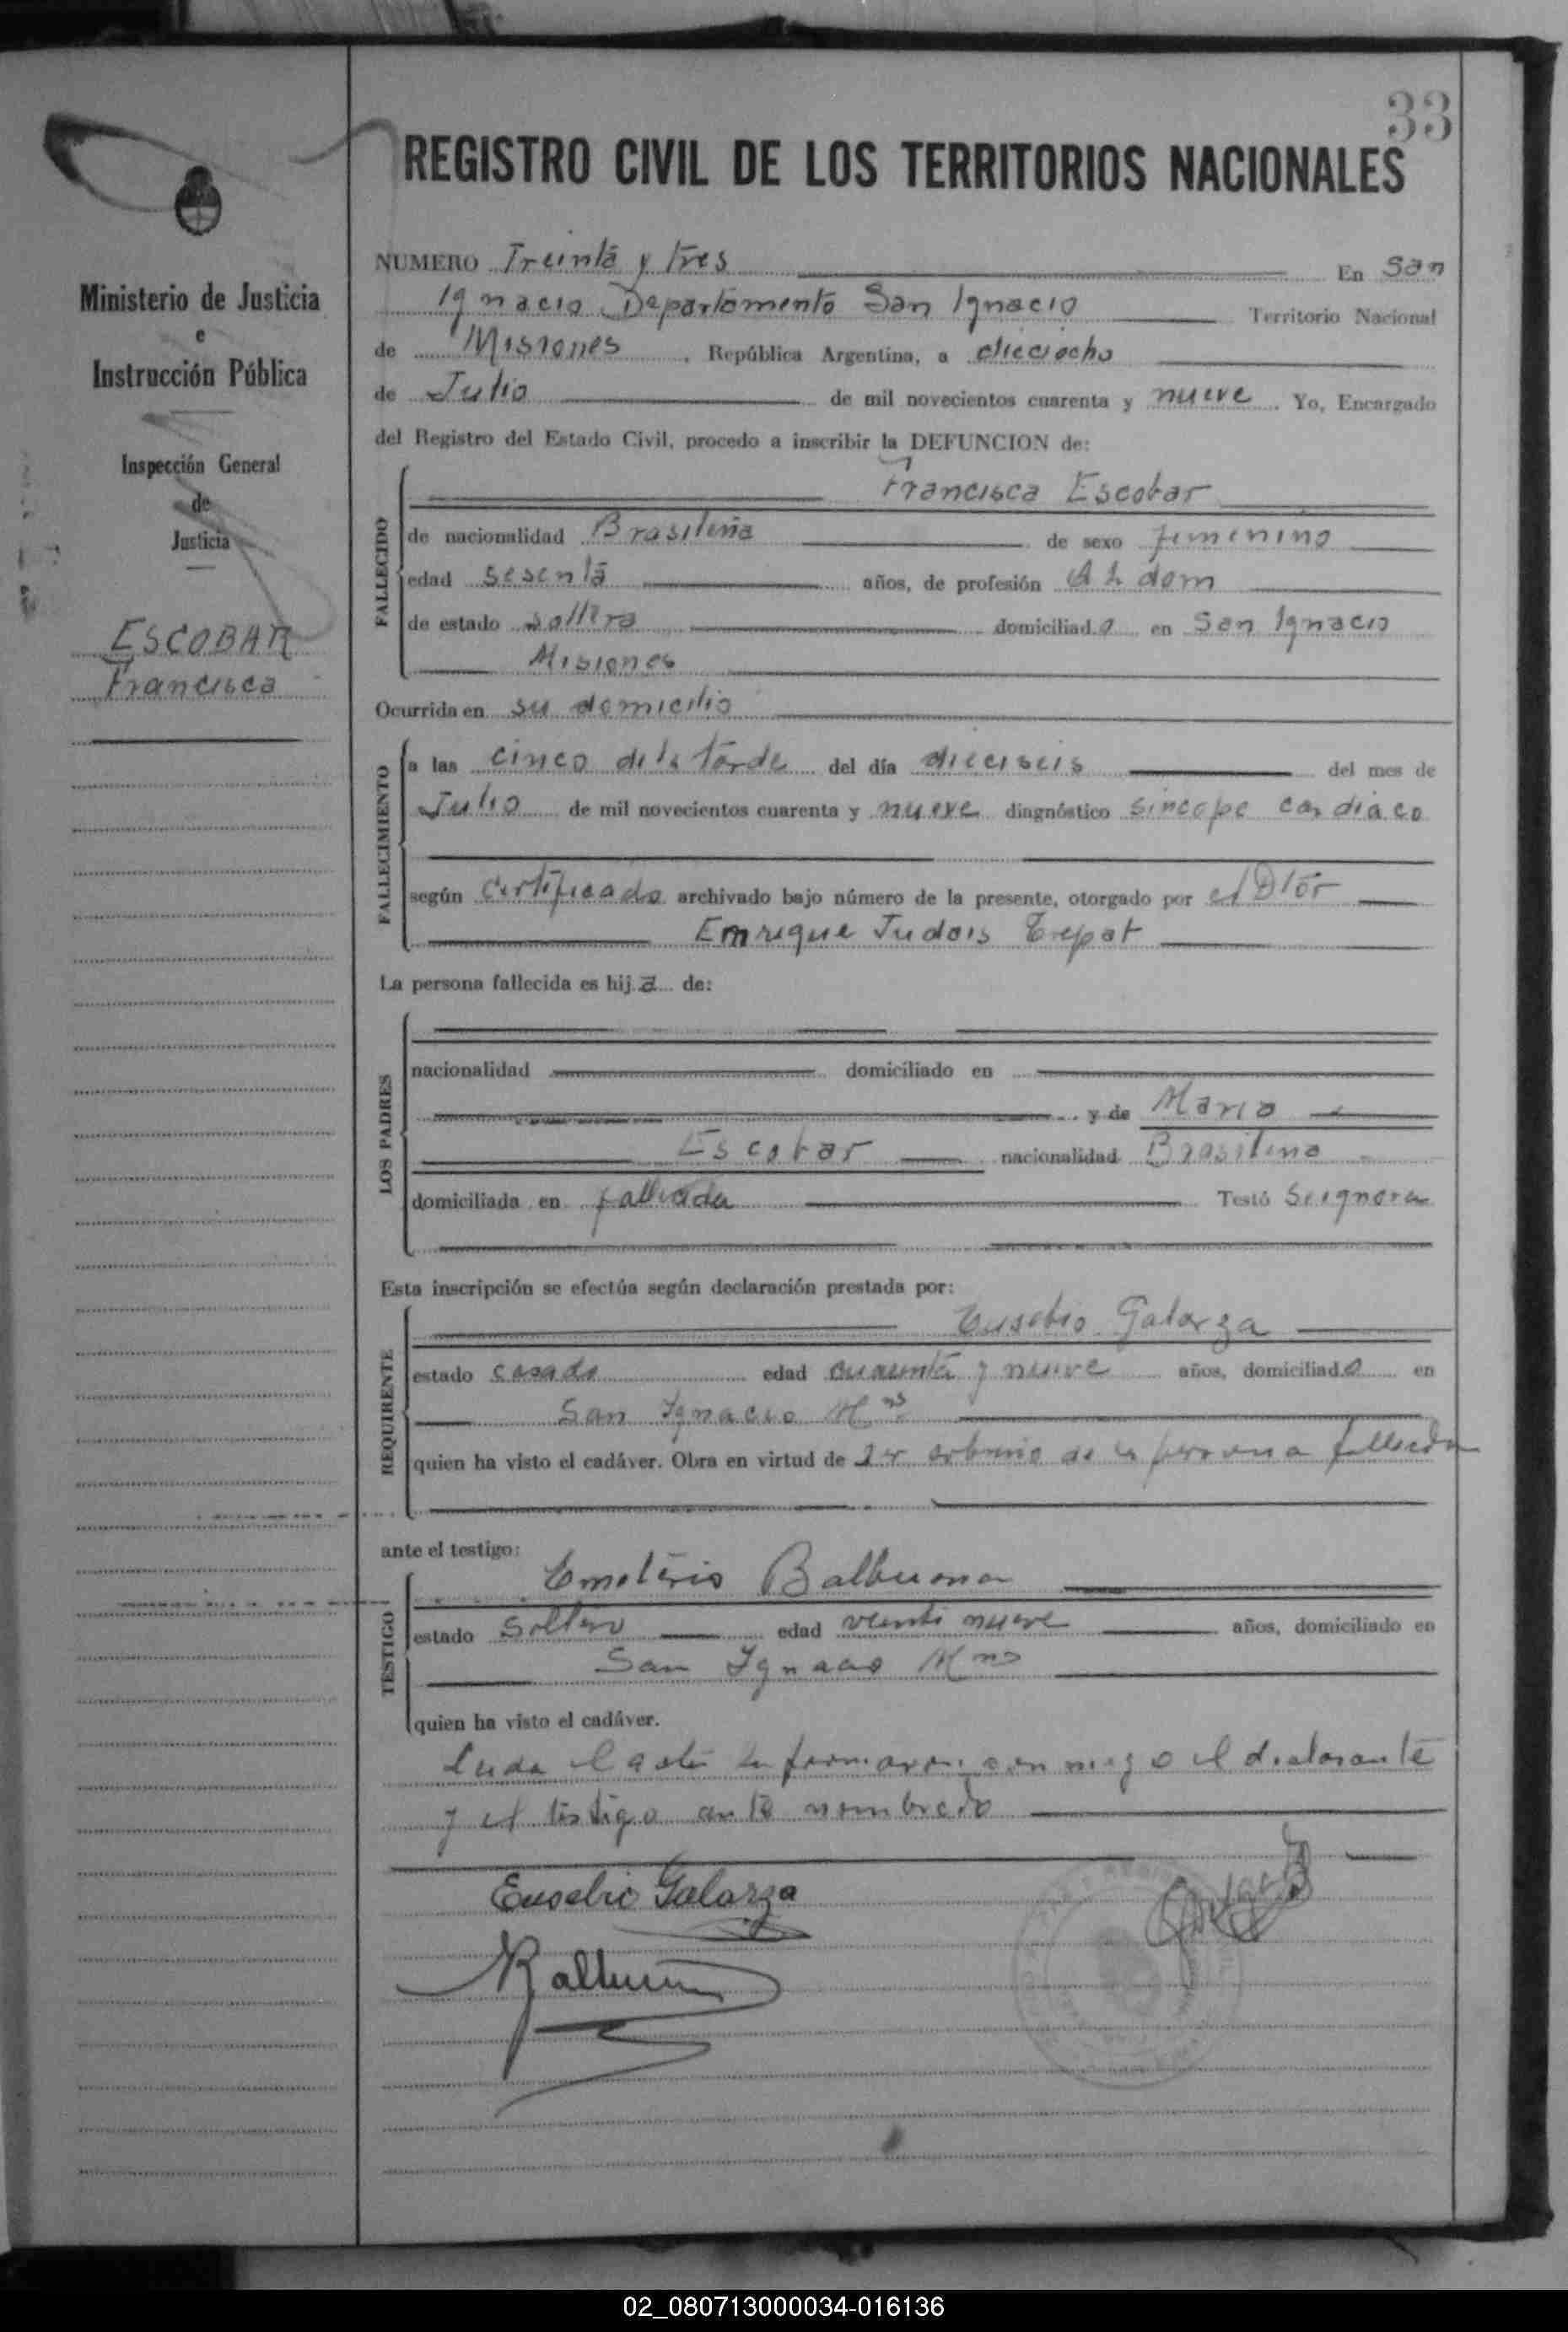 33
REGISTRO CIVIL DE LOS TERRITORIOS NACIONALES
Ministerio de Justicia
e
Instrucción Pública
Inspección General
de
Justicia
ESCOBAR
Francisca
NUMERO Treinta y tres En San
Ignacio Departamento San Ignacio Territorio Nacional
de Misiones, República Argentina, a dieciocho
de Julio de mil novecientos cuarenta y nueve. Yo, Encargado
del Registro del Estado Civil, procedo a inscribir la DEFUNCION de:
FALLECIDO
Francisca Escobar
de nacionalidad Brasileña de sexo femenino
edad sesenta años, de profesión dom
de estado soltera domiciliado en San Ignacio
Misiones
Ocurrida en su domicilio
FALLECIMIENTO
a las cinco de la tarde del día dieciseis del mes de
Julio de mil novecientos cuarenta y nueve diagnóstico sincope cardiaco
según Certificado archivado bajo número de la presente, otorgado por el Dtor
Enrique Trepat
La persona fallecida es hija de:
LOS PADRES
nacionalidad domiciliado en
y de Maria
Escobar nacionalidad Brasilena
domiciliada en fallecida Testó Se ignora
Esta inscripción se efectúa según declaración prestada por:
REQUIRENTE
Eusebio Galarza
estado casado edad cuarenta y nueve años, domiciliado en
San Ignacio Mnes
quien ha visto el cadáver. Obra en virtud de de la persona fallecida
ante el testigo:
TESTIGO
Emeterio Balbuena
estado Soltero edad veinti nueve años, domiciliado en
San Ignacio Mnes
quien ha visto el cadáver.
Leida el acta la firmaron conmigo el declarante
y el testigo ante nombrado
Eusebio Galarza
Balbuena
02_080713000034-016136